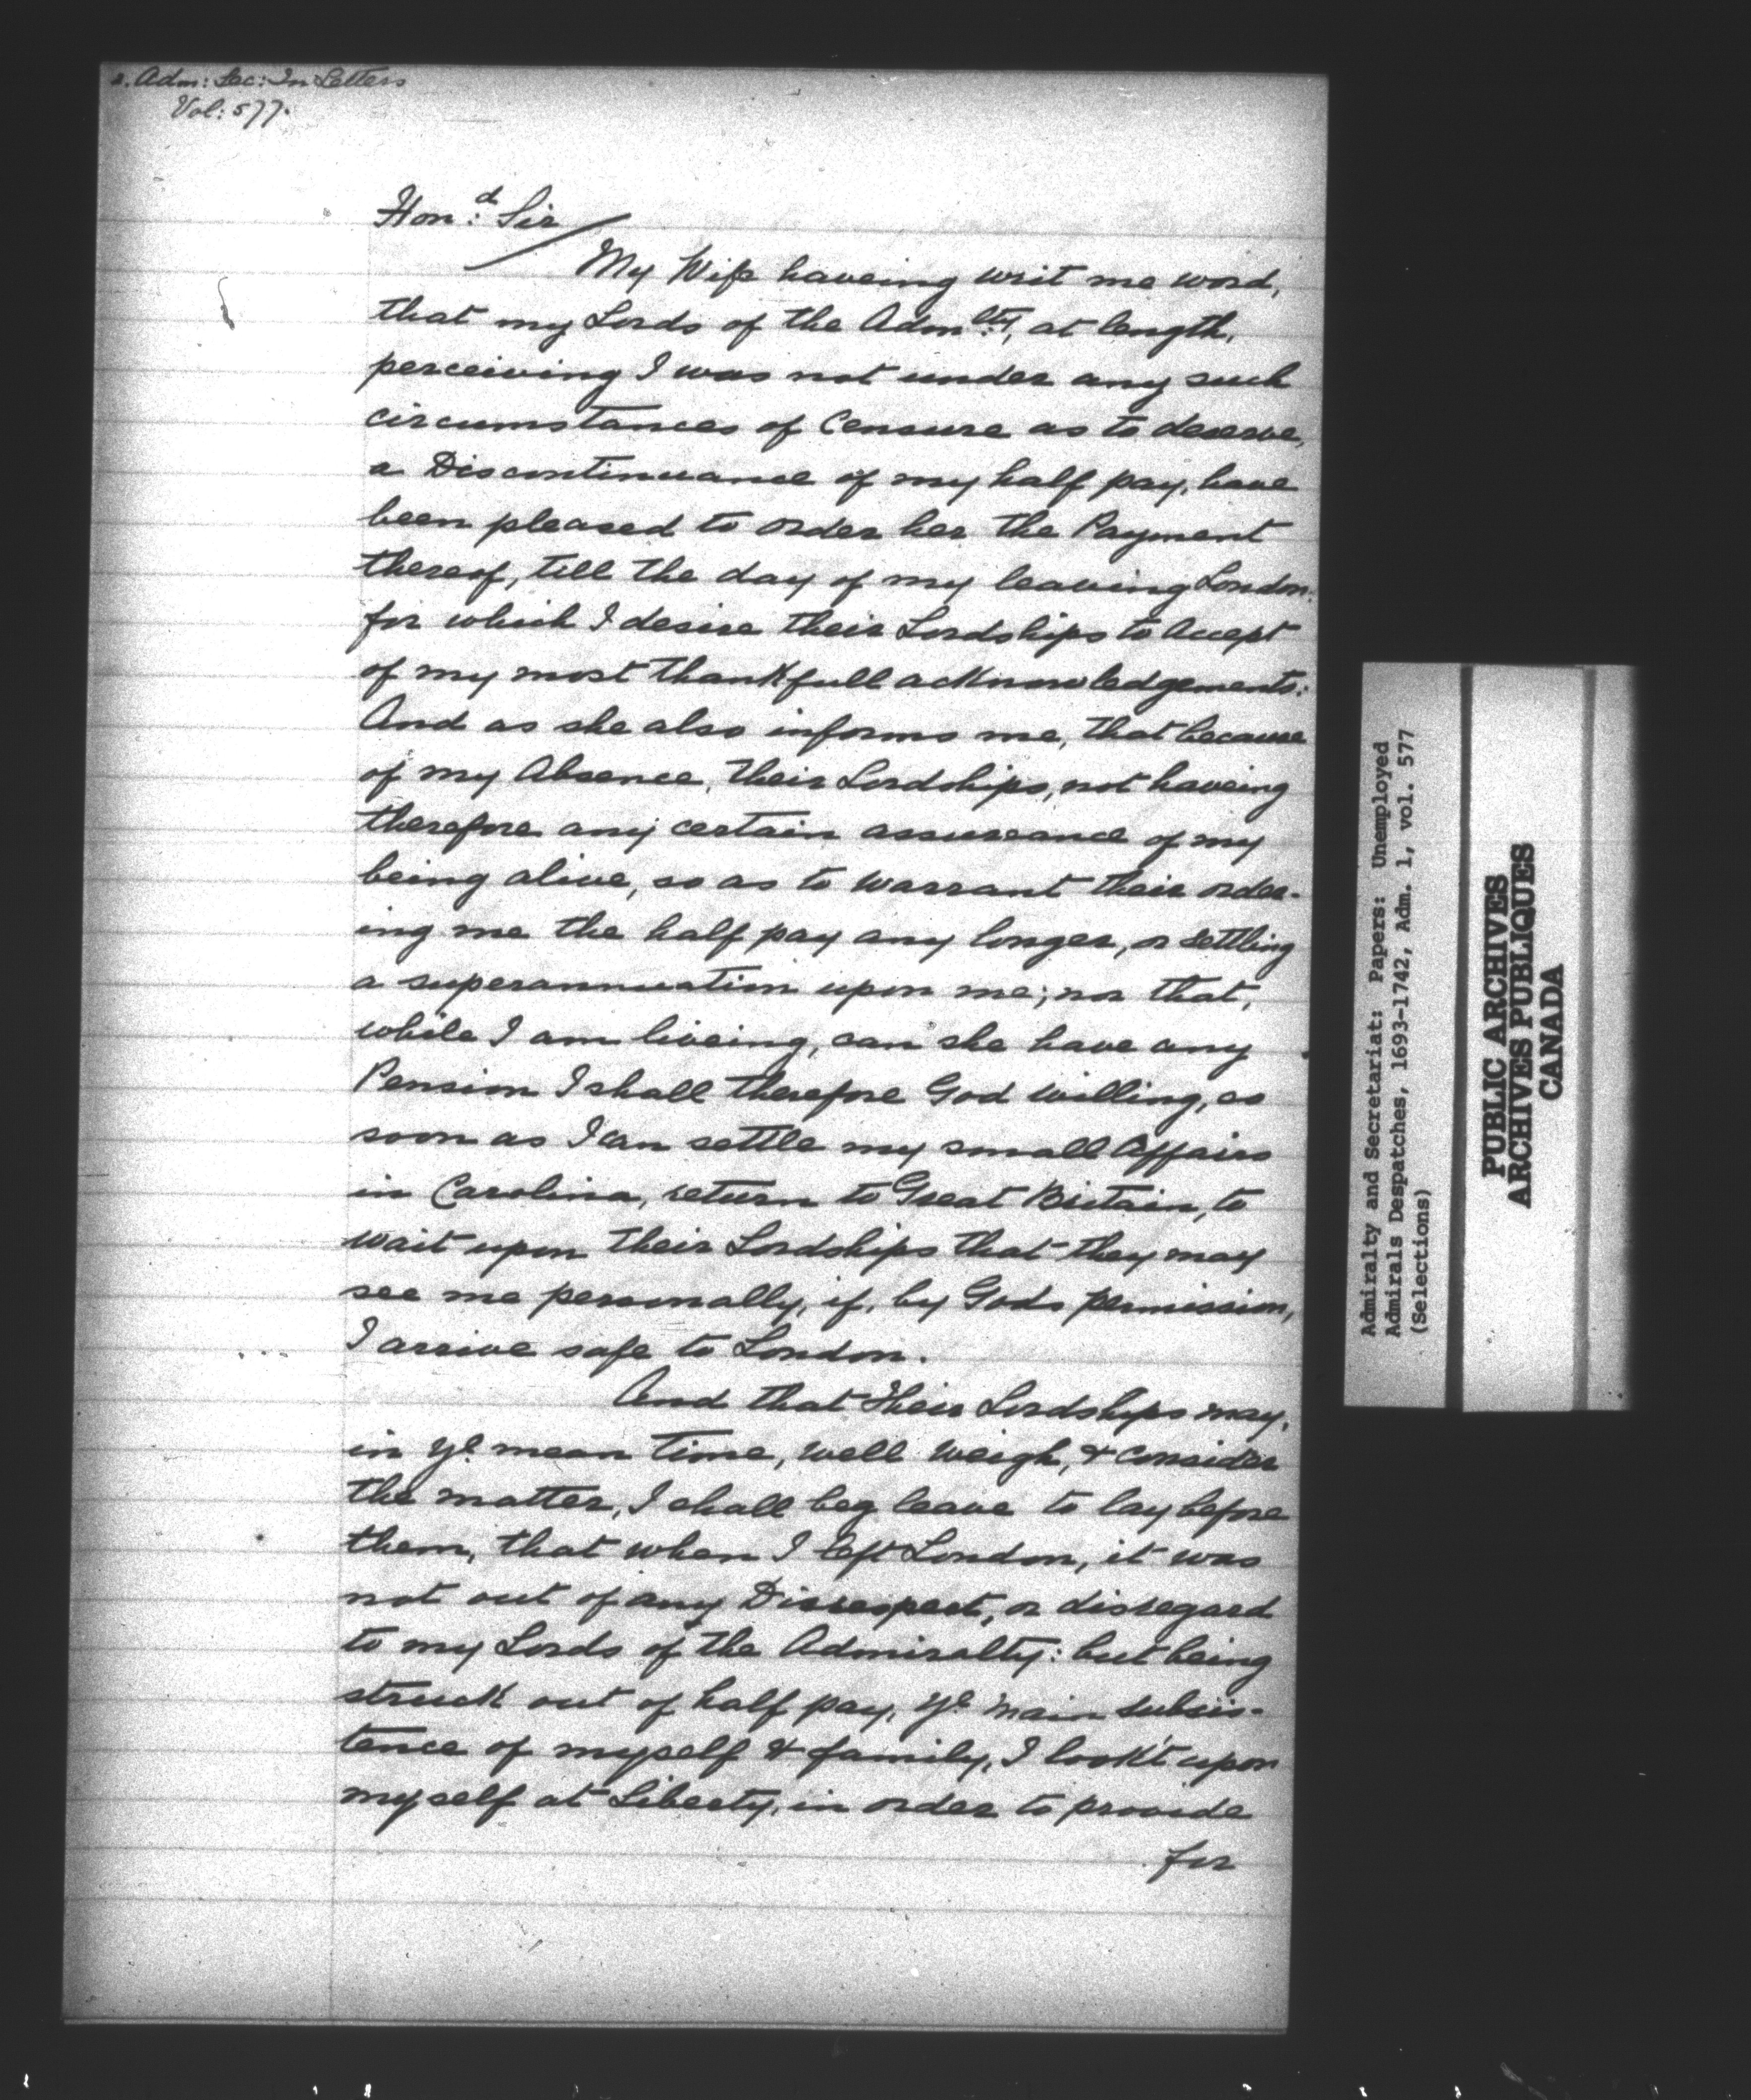 Adm: Sec: In Letters
Vol: 577.
Hon:d Sir
My Wife haveing writ me word,
that my Lords of the Adm:lty, at length,
perceiving I was not under any such
circumstances of Censure as to deserve,
a Discontinuance of my half pay, have
been pleased to order her the Payment
thereof, till the day of my leaving London.
for which I desire their Lordships to Accept
of my most thankfull acknowledgements:
And as she also informs me, that because
of my Absence, their Lordships, not haveing
therefore any certain assureance of my
being alive, so as to warrant their order-
ing me the half pay any longer, or settling
a superannuation upon me; nor that,
while I am liveing, can she have any
Pension I shall therefore God willing, as
soon as I can settle my small Affairs
in Carolina, return to Great Britain, to
wait upon their Lordships that they may
see me personally, if, by Gods permission,
I arrive safe to London.
And that their Lordships may,
in ye mean time, well weigh, & consider
the matter, I shall beg leave to lay before
them, that when I left London, it was
not out of any Disrespect, or disregard
to my Lords of the Admiralty: but being
struck out of half pay, ye main subsis-
tence of myself & family, I look't upon
myself at Liberty, in order to provide
for
Admiralty and Secretariat: Papers: Unemployed
Admirals Despatches, 1693-1742, Adm. 1, vol. 577
(Selections)
PUBLIC ARCHIVES
ARCHIVES PUBLIQUES
CANADA